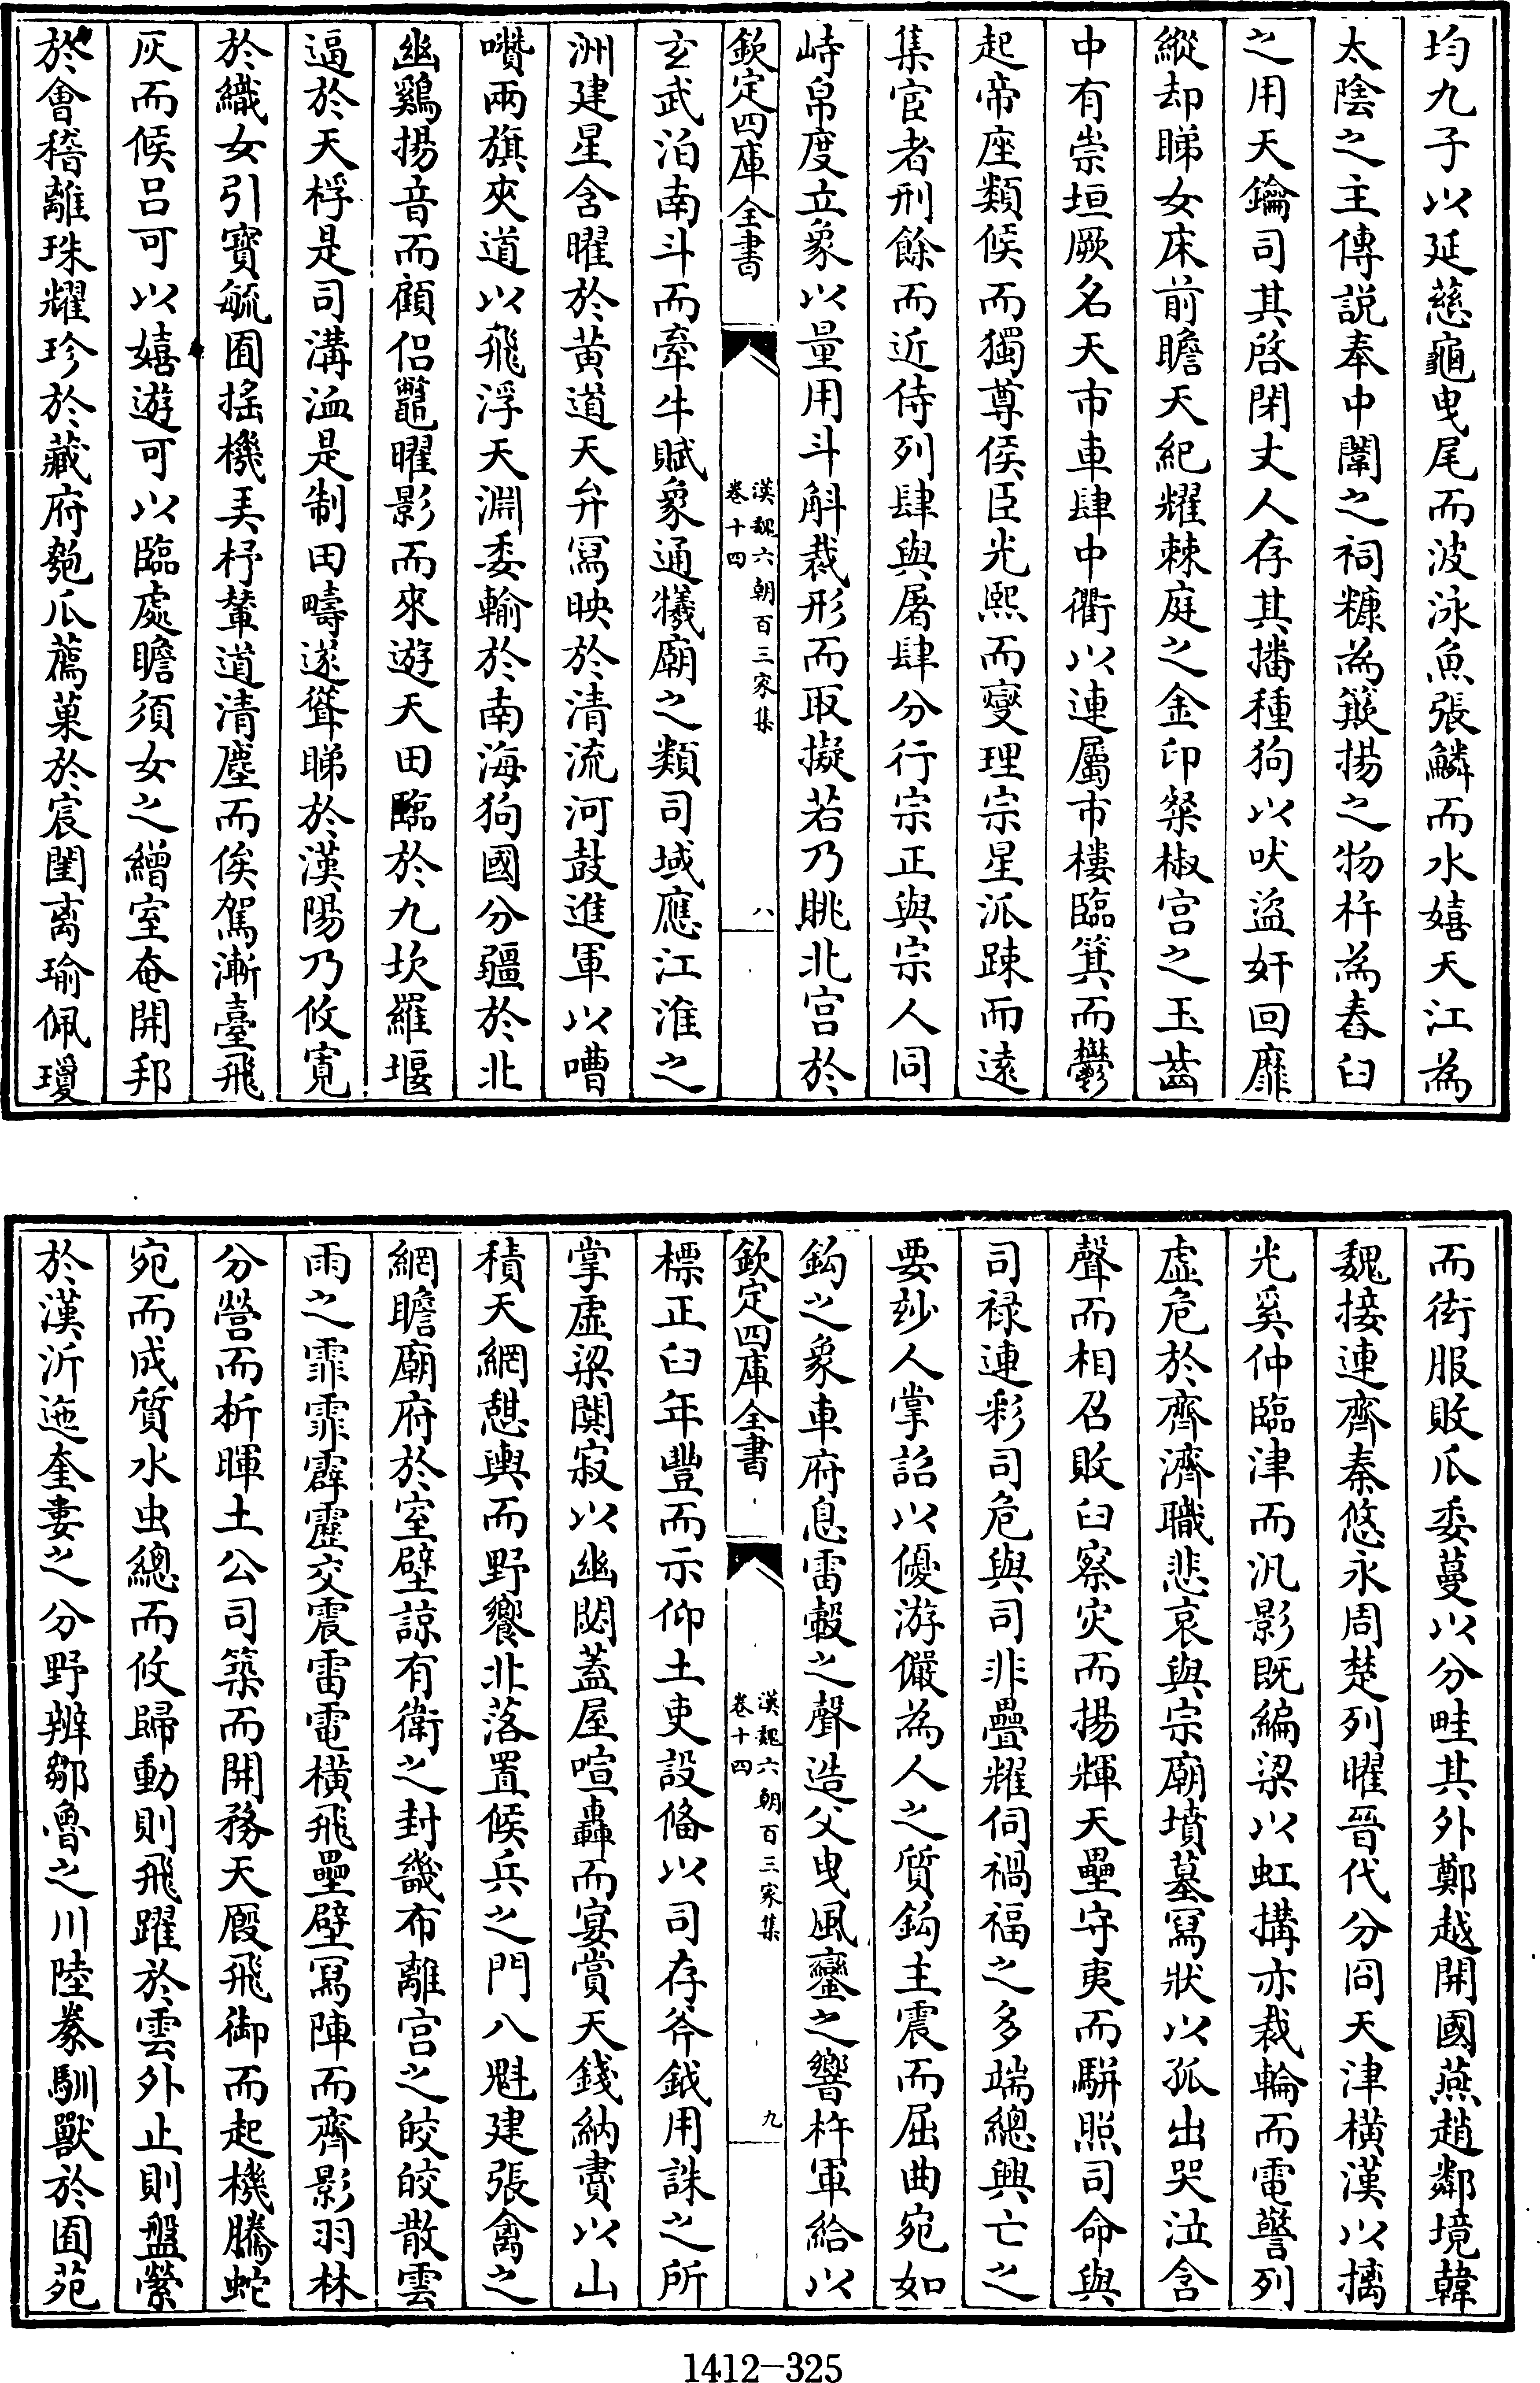 均九子以延慈龜曳尾而波泳魚張鱗而水嬉天江為
太陰之主傳説奉中闈之祠糠為簸揚之物杵為舂臼
之用天鑰司其啓閉丈人存其播種狗以吠盜奸回靡
縱却睇女床前瞻天紀耀棘庭之金印粲椒宫之玉齒
中有崇垣厥名天市車肆中衢以連屬市樓臨箕而鬱
起帝座類候而獨尊侯臣光熙而燮理宗星派踈而逺
集宦者刑餘而近侍列肆與屠肆分行宗正與宗人同
峙帛度立象以量用斗斛裁形而取擬若乃眺北宫於
欽定四庫全書
漢魏六朝百三家集
卷十四
八
玄武泊南斗而牽牛賦象通犧廟之類司域應江淮之
洲建星含曜於黄道天弁冩映於清流河鼓進軍以嘈
囋兩旗夾道以飛浮天淵委輸於南海狗國分疆於北
幽鷄揚音而顧侣鼈曜影而來遊天田臨於九坎羅堰
逼於天桴是司溝洫是制田疇遂聳睇於漢陽乃攸寛
於織女引寳毓囿揺機弄杼輦道清塵而俟駕漸臺飛
灰而候吕可以嬉遊可以臨處瞻須女之繒室奄開邦
於會稽離珠耀珍於藏府匏瓜薦菓於宸闈离瑜佩瓊
而衒服敗瓜委蔓以分畦其外鄭越開國燕趙鄰境韓
魏接連齊秦悠永周楚列曜晉代分冏天津横漢以摛
光奚仲臨津而汎影既編梁以虹搆亦裁輪而電警列
虛危於齊濟職悲哀與宗廟墳墓冩狀以孤出哭泣含
聲而相召敗臼察灾而揚輝天壘守夷而駢照司命與
司禄連彩司危與司非疊耀伺禍福之多端總興亡之
要玅人掌詔以優游儼為人之質鈎主震而屈曲宛如
鈎之象車府息雷轂之聲造父曳風鑾之響杵軍給以
欽定四庫全書
漢魏六朝百三家集
卷十四
九
標正臼年豐而示仰土吏設俻以司存斧鉞用誅之所
掌虛梁闃寂以幽閟蓋屋喧轟而宴賞天錢納賮以山
積天網憇輿而野饗北落置候兵之門八魁建張禽之
網瞻廟府於室壁諒有衛之封畿布離宫之皎皎散雲
雨之霏霏霹靂交震雷電横飛壘壁冩陣而齊影羽林
分營而析暉土公司築而開務天廐飛御而起機騰蛇
宛而成質水虫總而攸歸動則飛躍於雲外止則盤縈
於漢沂迤奎婁之分野辨鄒魯之川陸豢馴獸於囿苑
1412—325